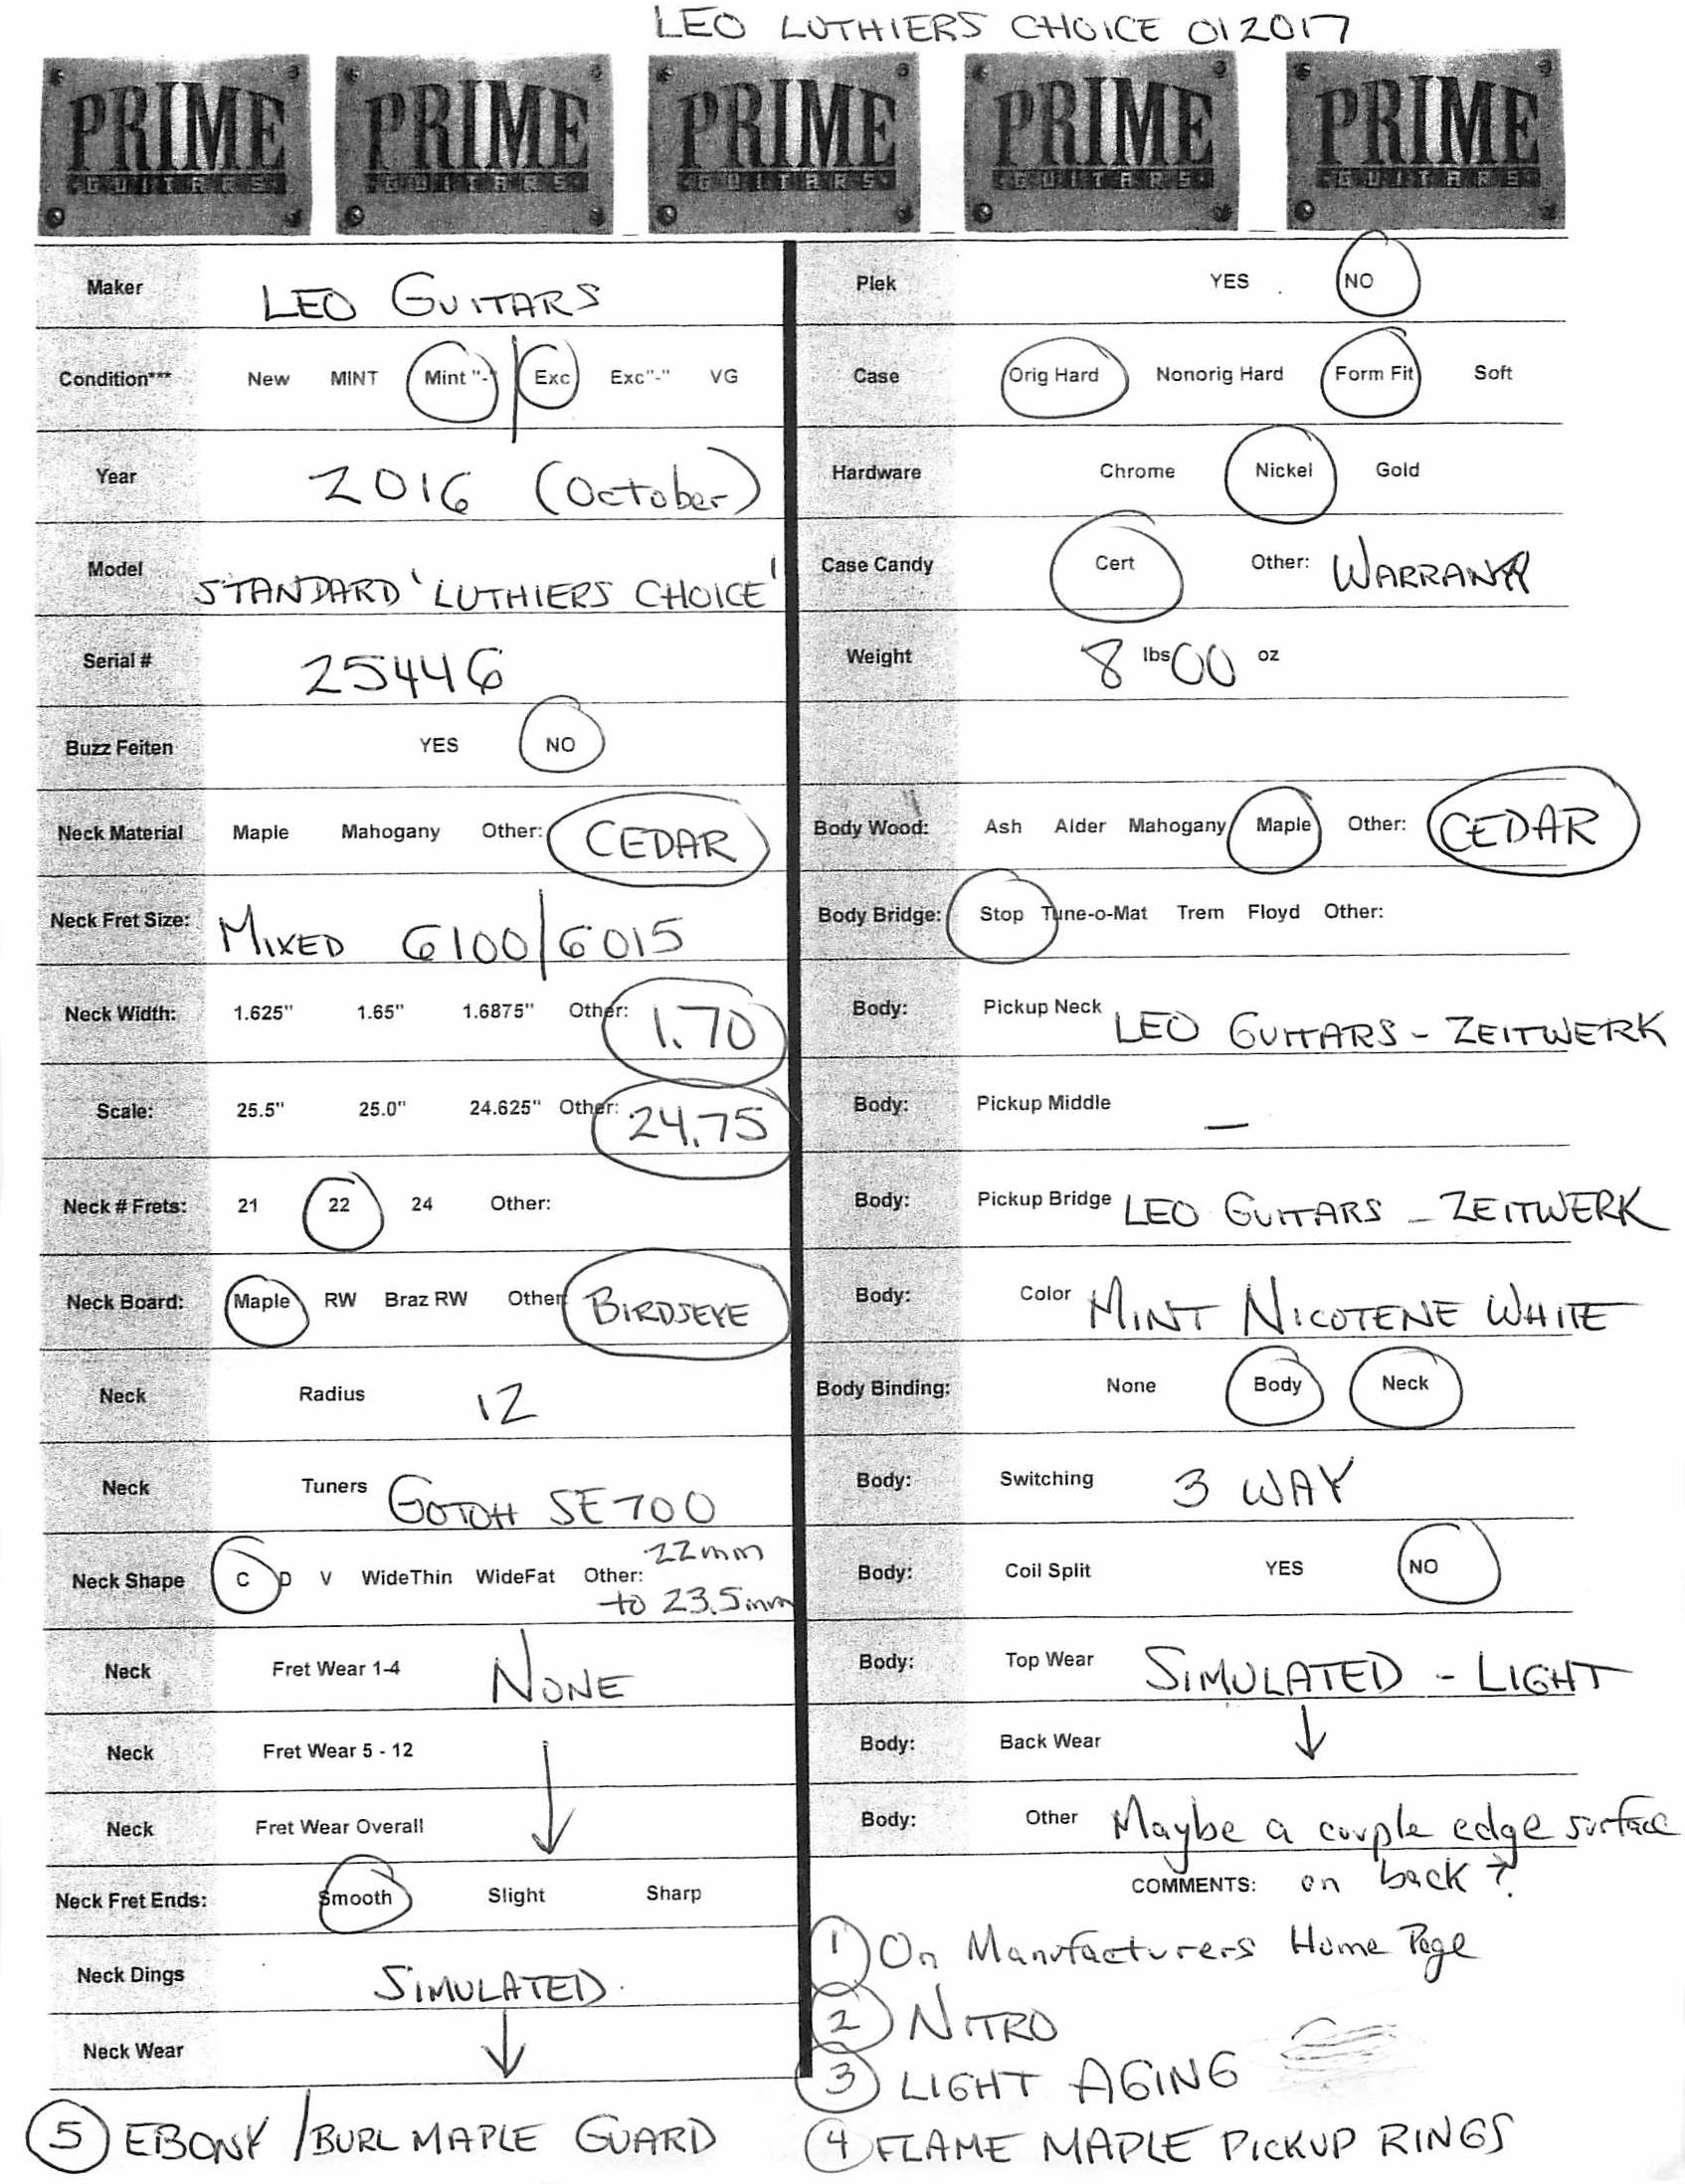 LEO LUTHIERS CHOICE 012017
PRIME PRIME PRIME PRIME PRIME
GUITARS GUITARS GUITARS GUITARS GUITARS
Maker LEO GUITARS
Condition*** New MINT Mint "-" Exc Exc"-" VG
Year 2016 (October)
Model STANDARD 'LUTHIERS CHOICE'
Serial # 25446
Buzz Feiten YES NO
Neck Material Maple Mahogany Other: CEDAR
Neck Fret Size: MIXED 6100/6015
Neck Width: 1.625" 1.65" 1.6875" Other: 1.70
Scale: 25.5" 25.0" 24.625" Other: 24.75
Neck # Frets: 21 22 24 Other:
Neck Board: Maple RW Braz RW Other: BIRDSEYE
Neck Radius 12
Neck Tuners GOTOH SE700
Neck Shape C D V WideThin WideFat Other: 22mm
to 23.5mm
Neck Fret Wear 1-4 NONE
Neck Fret Wear 5 - 12
Neck Fret Wear Overall
Neck Fret Ends: Smooth Slight Sharp
Neck Dings SIMULATED
Neck Wear
Plek YES NO
Case Orig Hard Nonorig Hard Form Fit Soft
Hardware Chrome Nickel Gold
Case Candy Cert Other: WARRANTY
Weight 8 lbs 00 oz
Body Wood: Ash Alder Mahogany Maple Other: CEDAR
Body Bridge: Stop Tune-o-Mat Trem Floyd Other:
Body: Pickup Neck LEO GUITARS - ZEITWERK
Body: Pickup Middle —
Body: Pickup Bridge LEO GUITARS - ZEITWERK
Body: Color MINT NICOTENE WHITE
Body Binding: None Body Neck
Body: Switching 3 WAY
Body: Coil Split YES NO
Body: Top Wear SIMULATED - LIGHT
Body: Back Wear
Body: Other Maybe a couple edge surface
COMMENTS: on back?
1 On Manufacturers Home Page
2 NITRO
3 LIGHT AGING
4 FLAME MAPLE PICKUP RINGS
5 EBONY/BURL MAPLE GUARD